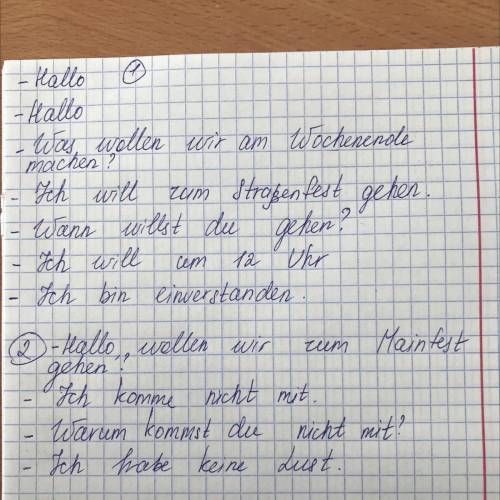 - Hallo ①
- Hallo
- Was wollen wir am Wochenende
machen?
- Ich will zum Straßenfest gehen.
- Wann willst du gehen?
- Ich will um 12 Uhr
- Ich bin einverstanden.
② - Hallo, wollen wir zum Mainfest
gehen?
- Ich komme nicht mit.
- Warum kommst du nicht mit?
- Ich habe keine Lust.